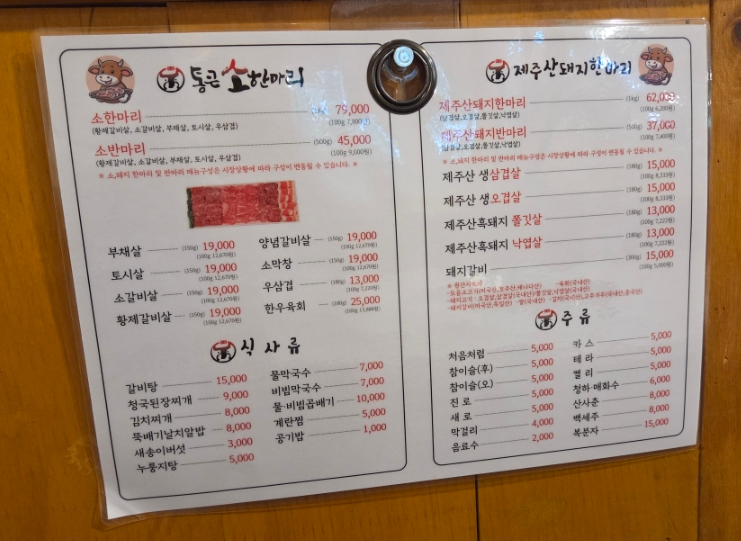 통큰 소한마리
소한마리 79,000
(황제갈비살, 소갈비살, 부채살, 토시살, 우삼겹)
소반마리 (500g) 45,000
(황제갈비살, 소갈비살, 부채살, 토시살, 우삼겹) (100g 9,000원)
※ 소,돼지 한마리 및 반마리 메뉴구성은 시장상황에 따라 구성이 변동될 수 있습니다. ※
부채살 (150g) 19,000
(100g 12,670원)
토시살 (150g) 19,000
(100g 12,670원)
소갈비살 (150g) 19,000
(100g 12,670원)
황제갈비살 (150g) 19,000
(100g 12,670원)
양념갈비살 (150g) 19,000
(100g 12,670원)
소막창 (150g) 19,000
(100g 12,670원)
우삼겹 (180g) 13,000
한우육회 (180g) 25,000
식사류
갈비탕 15,000
청국된장찌개 9,000
김치찌개 8,000
뚝배기날치알밥 8,000
새송이버섯 3,000
누룽지탕 5,000
물막국수 7,000
비빔막국수 7,000
물·비빔곱배기 10,000
계란찜 5,000
공기밥 1,000
제주산돼지한마리
제주산돼지한마리 (1kg) 62,000
(삼겹살,오겹살,쫄깃살,낙엽살) (100g 6,200원)
제주산돼지반마리 (500g) 37,000
(삼겹살,오겹살,쫄깃살,낙엽살) (100g 7,400원)
※ 소,돼지 한마리 및 반마리 메뉴구성은 시장상황에 따라 구성이 변동될 수 있습니다. ※
제주산 생삼겹살 (180g) 15,000
(100g 8,333원)
제주산 생오겹살 (180g) 15,000
(100g 8,333원)
제주산흑돼지 쫄깃살 (180g) 13,000
(100g 7,222원)
제주산흑돼지 낙엽살 (180g) 13,000
(100g 7,222원)
돼지갈비 (300g) 15,000
(100g 5,000원)
※ 원산지표기
주류
처음처럼 5,000
참이슬(후) 5,000
참이슬(오) 5,000
진로 5,000
새로 5,000
막걸리 4,000
음료수 2,000
카스 5,000
테라 5,000
켈리 5,000
청하·매화수 6,000
산사춘 8,000
백세주 8,000
복분자 15,000